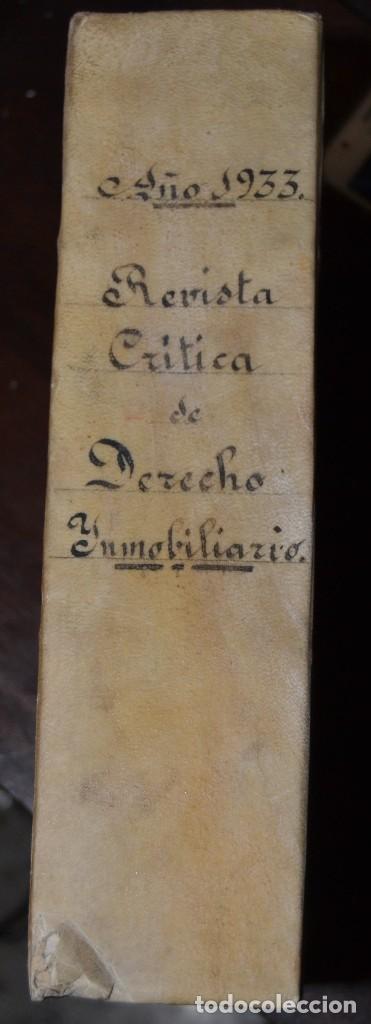 Año 1933.
Revista
Crítica
de
Derecho
Inmobiliario.
todocoleccion